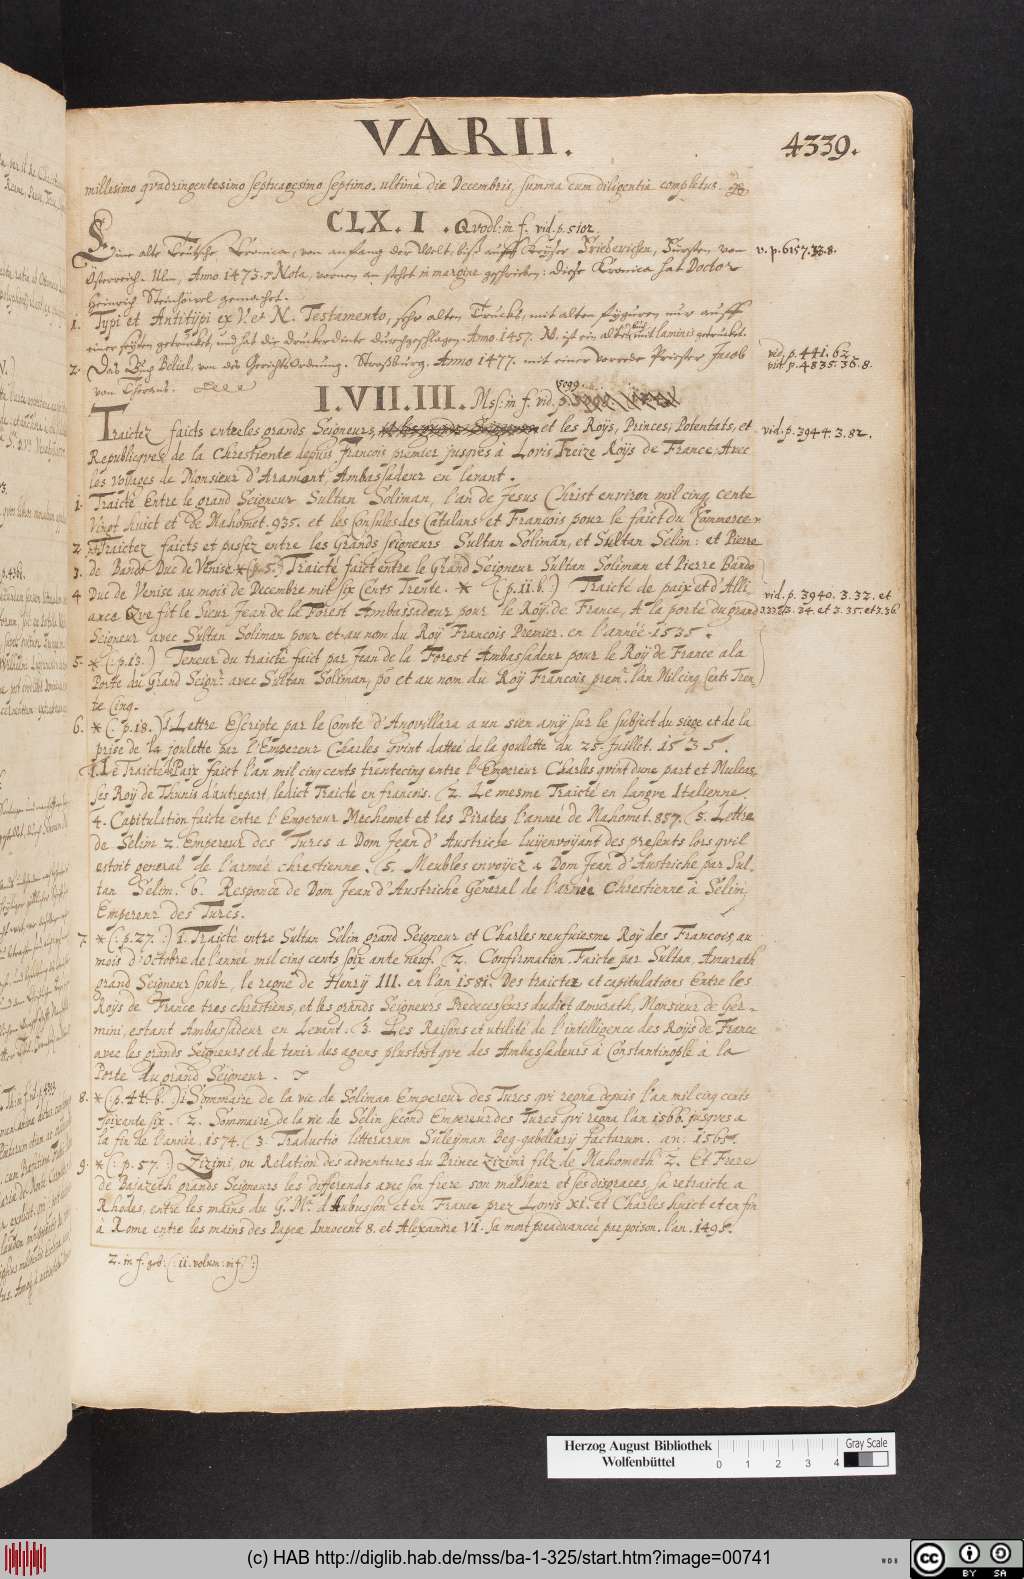 VARII.
4339.
millesimo qvadringentesimo septuagesimo septimo. ultima die Decembris, summa cum diligentia completus.
CLX. I. Qvodl: in f. vid. p. 5102.
Eine alte Teutsche Cronica, von anfang der Welt, biß auff Keyser Friederichen, Fursten von
v. p. 6157. 8.
Österreich. Ulm, Anno 1473. Nota, vornen an stehet in margine geschrieben: diese Cronica hat Doctor
Heinrich Steinhöwel gemachet.
1. Typi et Antitypi ex V. et N. Testamento, sehr alten Trucks, mit alten figuren nur auff
einer seyten getrucket, und hat die druckerdinte durchgeschlagen. Anno 1457. NB. ist ein alter mit laminis getrucket.
2. Das Bug Belial, von des Gerichts Ordnung. Straßburg. Anno 1477. mit einer vorrede Priester Jacob
vid. p. 441. 62.
p. 4835. 36. 8.
von Therano.
I. VII. III. Mss: in f. vid. p.
5099.
Traictez faicts entre les grands Seigneurs, et les Roys, Princes, Potentats, et
vid. p. 3944. 3. 82.
Republicqves de la Chrestienté depuis Francois premier jusqves a Lovis Treize Roys de France, Avec
les voyages de Monsieur d'Aramont, Ambassadeur en levant.
1. Traicté Entre le grand Seigneur Sultan Soliman, l'an de Jesus Christ environ mil cinq cents
Vingt huict et de Mahomet. 935. et les Consules des Catalans et Francois pour le faict du Commerce
2. Traictez faicts et passez entre les Grands seigneurs Sultan Soliman, et Sultan Selim: et Pierre
3. de Bando Duc de Venise * (: p. 5.) Traicté faict entre le Grand Seigneur Sultan Soliman et Pierre Bando
4 Duc de Venise au mois de Decembre mil six Cents Trente. * (: p. 11. b.) Traicté de paix et d'Alli
vid. p. 3940. 3. 32. et
ance Qve fit le Sieur Jean de la Forest Ambassadeur pour le Roy de France, A la porte du grand
3. 34. et 3. 35. et 3. 36
Seigneur avec Sultan Soliman pour et au nom du Roy Francois Premier. en l'année 1535.
5. * (: p. 13.) Teneur du traicté faict par Jean de la Forest Ambassadeur pour le Roy de France a la
Porte du Grand Seign.r avec Sultan Soliman, po et au nom du Roy Francois prem.r l'an Mil cinq Cents Tren
te Cinq.
6. * (: p. 18.) 1. Lettre Escripte par le Comte d'Anovillara a un sien amy sur le subject du siege et de la
prise de la goulette par l'Empereur Charles qvint dattée de la goulette du 25. juillet. 1535.
Le Traicté de Paix faict l'an mil cinq cents trentecinq entre l'Empereur Charles qvint dune part et Muleas-
ses Roy de Thunis d'autre part, ledict Traicté en francois. (2. Le mesme Traicté en langve Italienne.
4. Capitulation faicte entre l'Empereur Mechemet et les Pirates l'année de Mahomet. 857. (5. Lettre
de Selim 2. Empereur des Turcs a Dom Jean d'Austriche luy envoyant des presents lors qvil
estoit general de l'armée chrestienne. (5. Meubles envoyez a Dom Jean d'Austriche par Sul-
tan Selim. 6. Responce de Dom Jean d'Austriche General de l'armée Chrestienne à Selim
Empereur des Turcs.
7. * (: p. 27. :) 1. Traicté entre Sultan Selim grand Seigneur et Charles neufuiesme Roy des Francois, au
mois d'Octobre de l'année mil cinq cents soix ante neuf. (2. Confirmation Faicte par Sultan Amurath
grand Seigneur soubz le regne de Henry III. en l'an 1581. Des traictez et capitulations Entre les
Roys de France tres chrestiens, et les grands Seigneurs Predecesseurs dudict Amurath, Monsieur de Ger-
mini, estant Ambassadeur en Levant. (3. Les Raisons et utilité de l'intelligence des Roys de France
avec les grands Seigneurs et de tenir des agens plustost qve des Ambassadeurs à Constantinople à la
Porte du grand Seigneur.
8. * (: p. 44. b. :) 1. Sommaire de la vie de Soliman Empereur des Turcs qvi regna depuis l'an mil cinq cents
soixante six. (2. Sommaire de la vie de Selin second Empereur des Turcs qvi regna l'an 1566. jusqves a
la fin de l'année. 1574. (3. Traductio litterarum Suleyman Beg gubellarij factarum. an: 1565.
9. * (: p. 57. :) Zizimi, ou Relation des adventures du Prince Zizimi filz de Mahometh 2. et Frere
de Bajazeth grands Seigneurs les differends avec son frere son malheur et ses disgraces, sa retraicte a
Rhodes, entre les mains du G. M.re d'Aubusson et en France prez Lovis XI. et Charles huict et en fin
à Rome entre les mains des Papes Innocent 8. et Alexandre VI. sa mort preadvancée par poison. l'an. 1495.
2. in f. geb: (: 11. volum:
Herzog August Bibliothek
Wolfenbüttel
0 1 2 3 4
Gray Scale
(c) HAB http://diglib.hab.de/mss/ba-1-325/start.htm?image=00741
WDB
cc BY SA